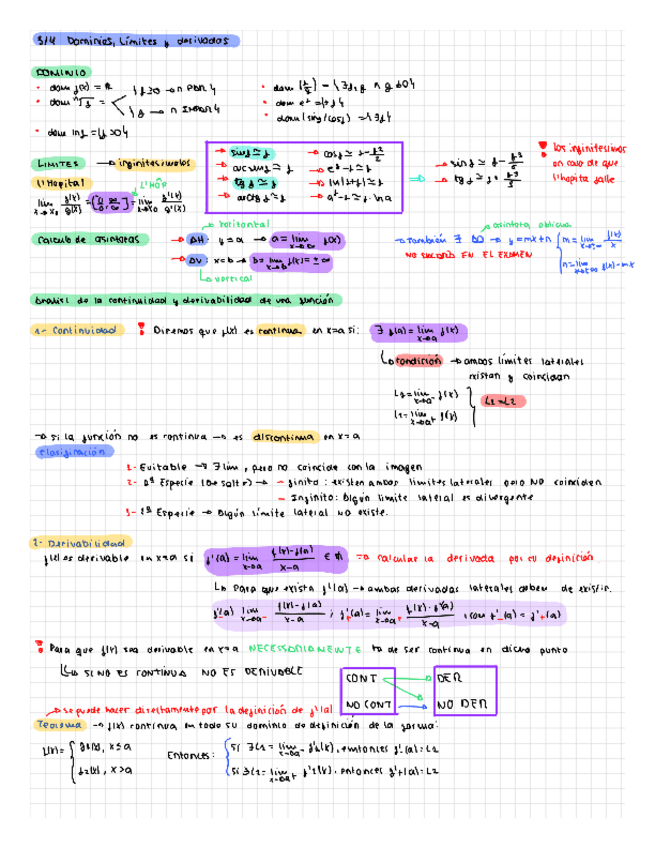 3/4 Dominios, Límites y derivadas
DOMINIO
LIMITES → infinitesimales
L'Hopital
L'HÔP
sin f ≃ f
arcsin f ≃ f
tg f ≃ f
arctg f ≃ f
e^f - 1 ≃ f
ln(1+f) ≃ f
a^f - 1 ≃ f · ln a
los infinitesimos
en caso de que
l'hopital falle
horizontal
Calculo de asintotas → AH: y = a → a = lim f(x)
x→∞
AV: x = b → b = lim f(x) = ± ∞
x→b
vertical
asintota oblicua
→ También ∃ AO → y = mx + n
NO SUELO EN EL EXAMEN
Analisi de la continuidad y derivabilidad de una función
1- Continuidad ! Diremos que f(x) es continua en x=a si: ∃ f(a) = lim f(x)
x→a
condición → ambos límites laterales
existan y coincidan
L1 = lim f(x)
x→a⁻
L2 = lim f(x)
x→a⁺
L1 = L2
→ si la función no es continua → es discontinua en x = a
Clasificación
1- Evitable → ∃ lim, pero no coincide con la imagen
2- 1ª Especie (De salto) → - finito: existen ambos limites laterales pero NO coinciden
- Infinito: Algún limite lateral es divergente
3- 2ª Especie → Algún límite lateral NO existe.
2- Derivabilidad
f(x) es derivable en x=a si f'(a) = lim f(x)-f(a) / x-a ∈ ℝ ⇒ calcular la derivada por su definición
x→a
Para que exista f'(a) → ambas derivadas laterales deben de existir.
f'₋(a) = lim f(x)-f(a) / x-a ; f'₊(a) = lim f(x)-f(a) / x-a , con f'₋(a) = f'₊(a)
! Para que f(x) sea derivable en x=a NECESSARIAMENTE ha de ser continua en dicho punto
SI NO ES CONTINUA NO ES DERIVABLE
CONT DER
NO CONT NO DER
→ se puede hacer directamente por la definición de f'(a)
Teorema → f(x) continua en todo su dominio de definición de la forma:
f(x) = { f1(x), x ≤ a
f2(x), x > a
Entonces:
Si ∃ L1 = lim f'1(x), entonces f'₋(a) = L1
x→a⁻
Si ∃ L2 = lim f'2(x), entonces f'₊(a) = L2
x→a⁺